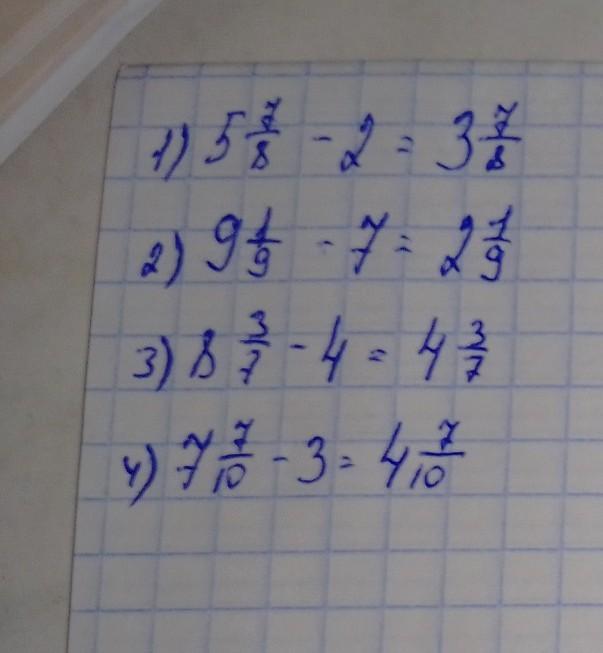 1) 5 7/8 - 2 = 3 7/8
2) 9 1/9 - 7 = 2 1/9
3) 8 3/7 - 4 = 4 3/7
4) 7 7/10 - 3 = 4 7/10